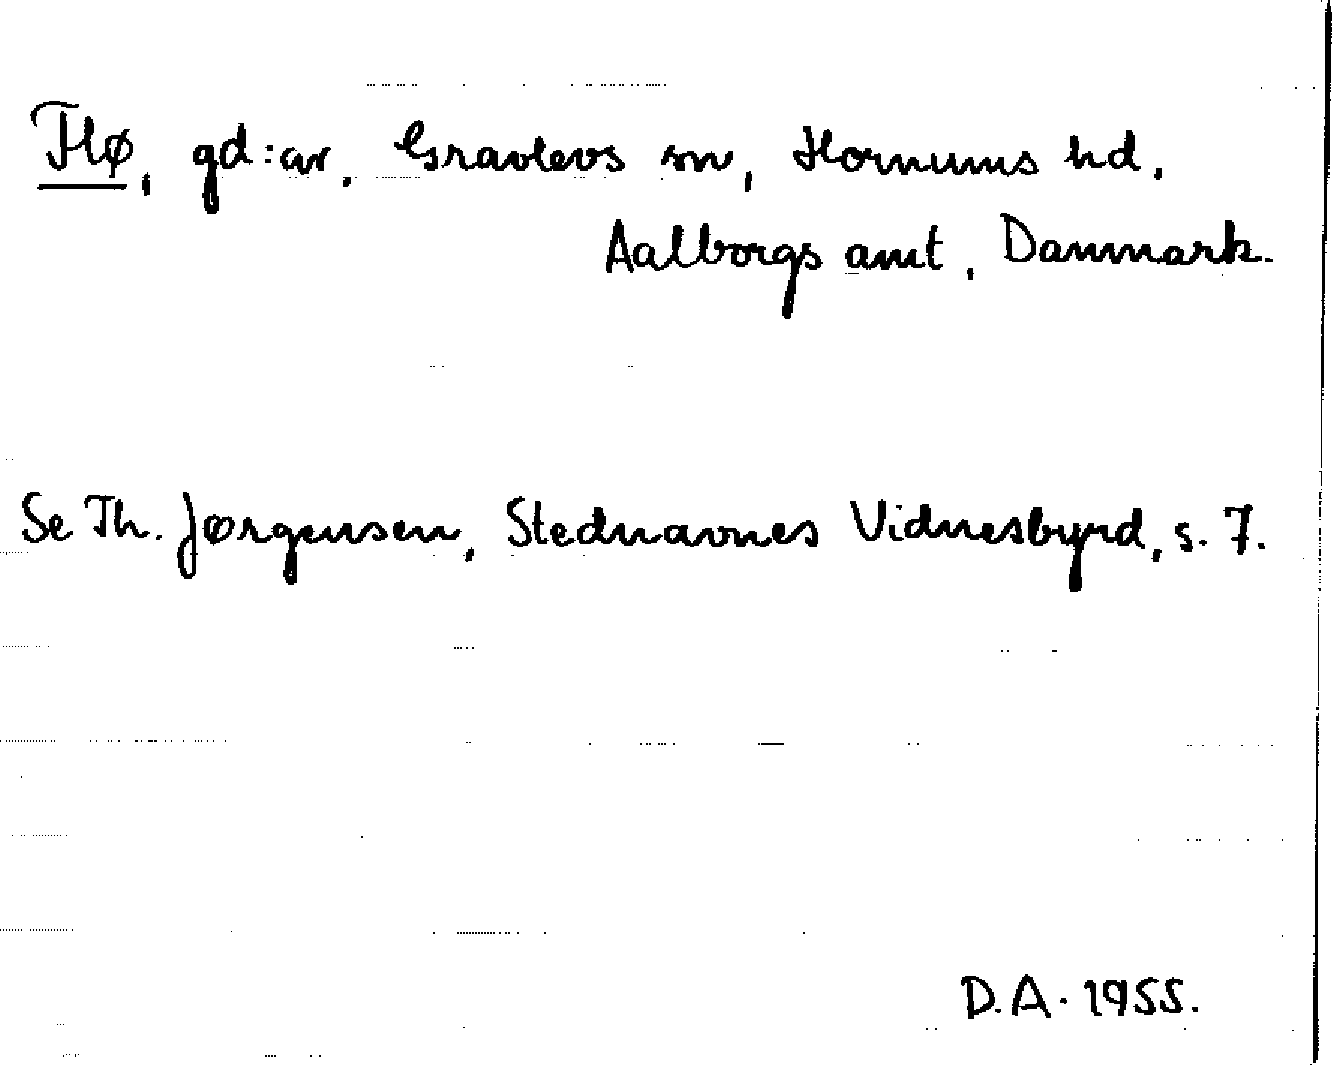 Flø, gd:ar, Gravlevs sn, Hornums hd,
Aalborgs amt, Danmark.
Se Th. Jørgensen, Stednavnes Vidnesbyrd, s. 7.
D.A. 1955.